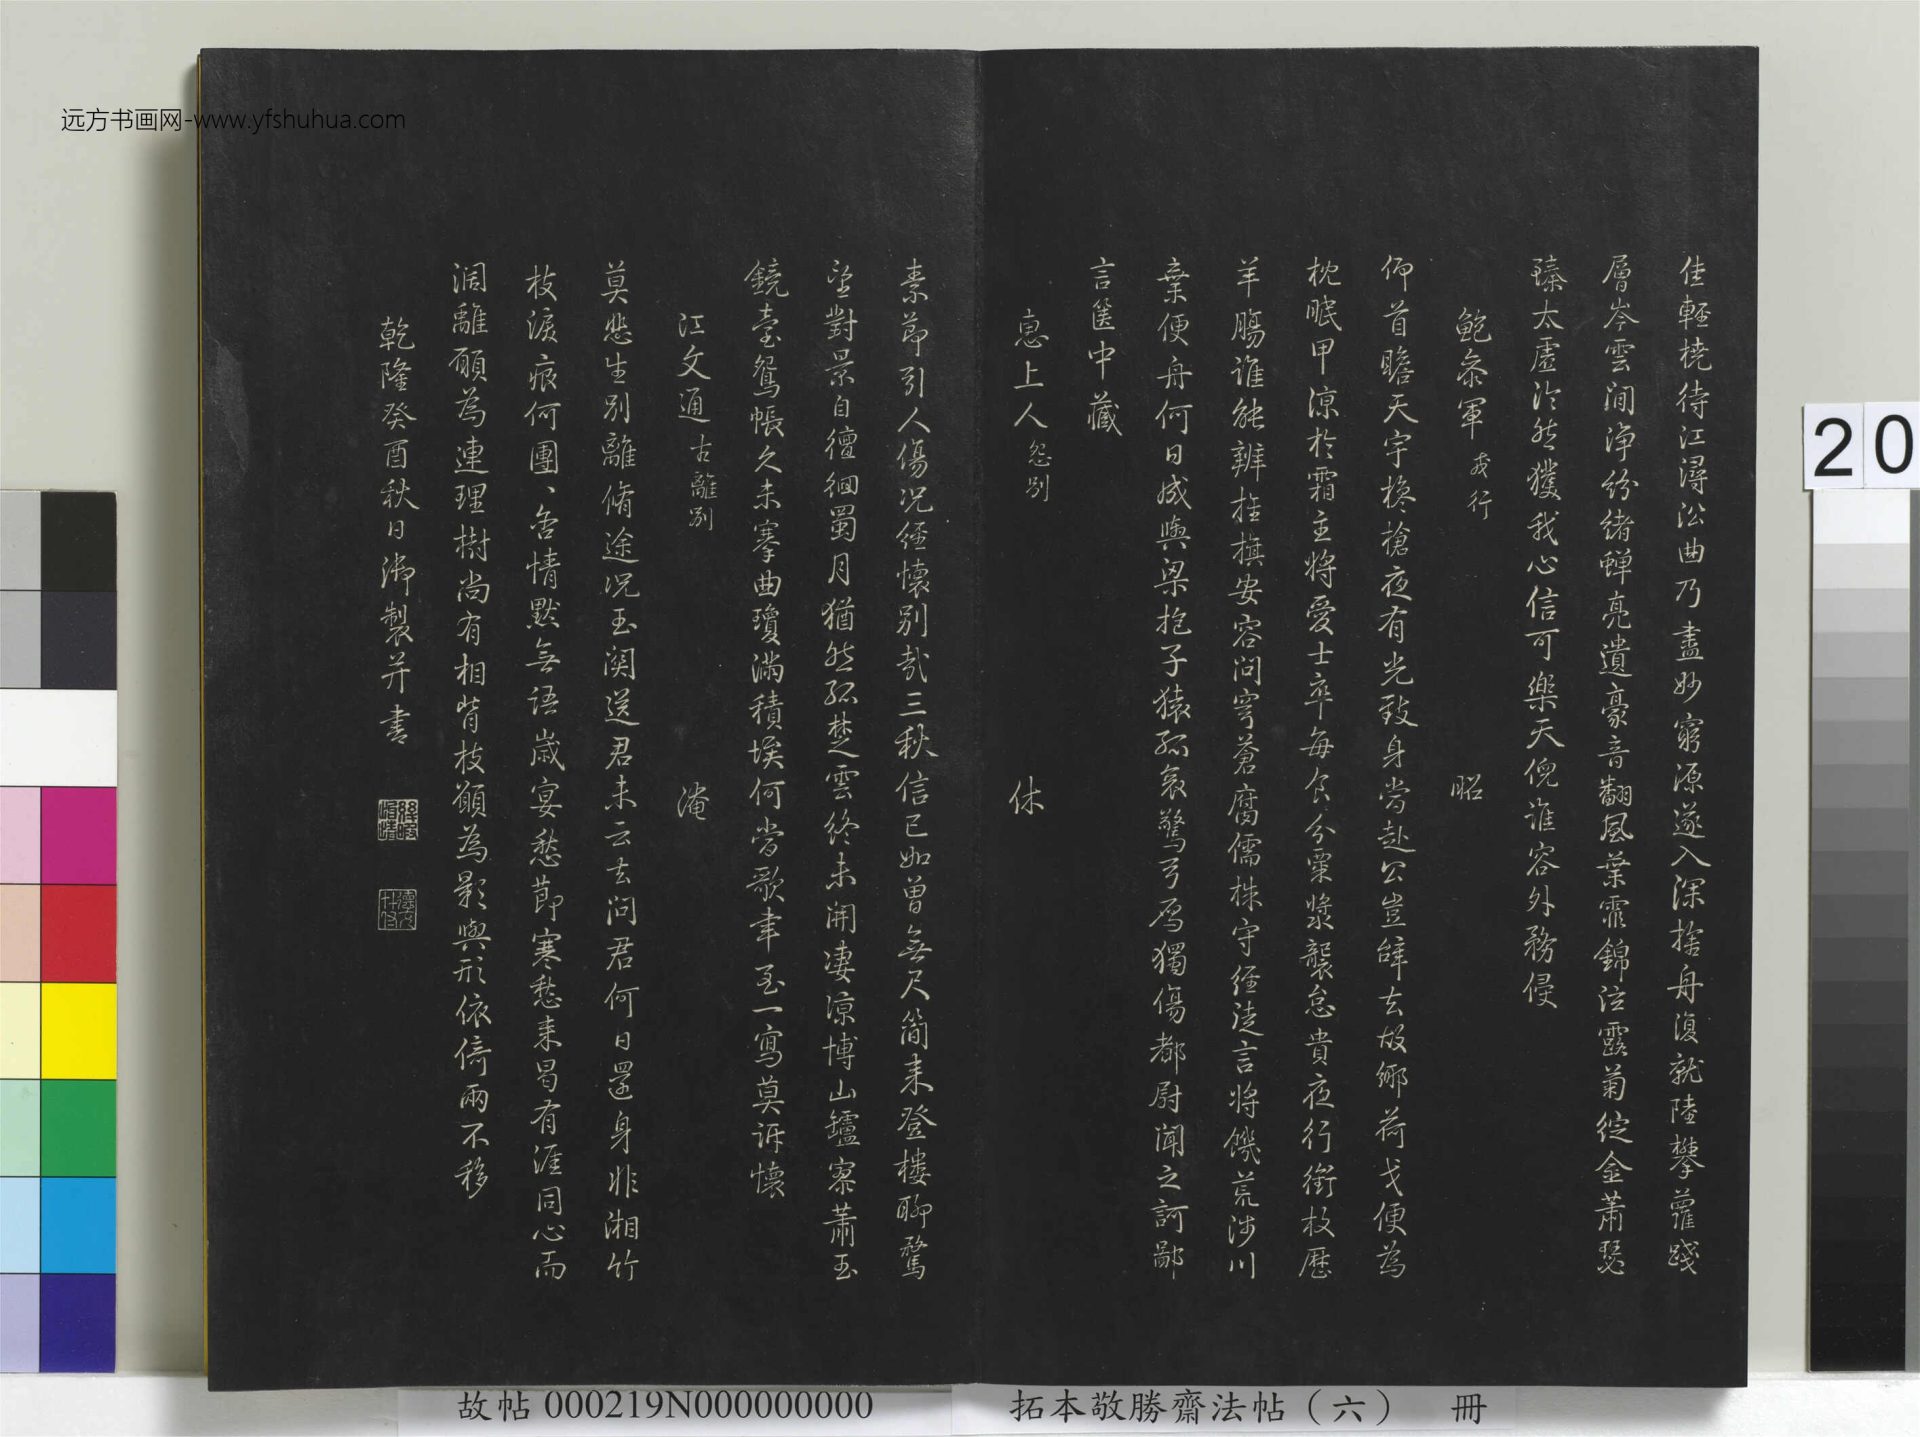 远方书画网-www.yfshuhua.com
佳輕橈待江潯沿曲乃盡妙窮源遂入深捨舟復就陸攀蘿踐
層岑雲澗淨紛緒蟬亮遺豪音翻風葉霏錦泫露菊綻金蕭瑟
臻太虛泠然獲我心信可樂天倪誰容外務侵
鮑參軍 戎行 昭
仰首瞻天宇欃槍夜有光致身當赴公豈辞去故鄉荷戈便為
枕眠甲涼於霜主將愛士卒每食分粟漿襲怠貴夜行銜枚歷
羊腸誰能辨旌旗安容問穹蒼腐儒株守經徒言將饑荒涉川
棄便舟何日成輿梁抱子猿孤哀驚弓雁獨傷都尉聞之訶鄙
言篋中藏
惠上人 怨別 休
素節引人傷況經懷別哉三秋信已如曾無尺簡來登樓聊騖
望對景自徘徊蜀月猶然孤楚雲終未開淒涼博山鑪寂蕭玉
鏡臺鴛帳久未搴曲瓊滿積埃何當歌聿至一寫莫訴懷
江文通 古離別 淹
莫悲生別離脩途況玉関送君未云去問君何日還身非湘竹
枝淚痕何團〻含情默無語歲宴愁節寒愁来曷有涯同心而
濶離願為連理樹尚有相背枝願為影與形依倚兩不移
乾隆癸酉秋日御製并書
20
故帖 000219N000000000
拓本敬勝齋法帖（六） 冊